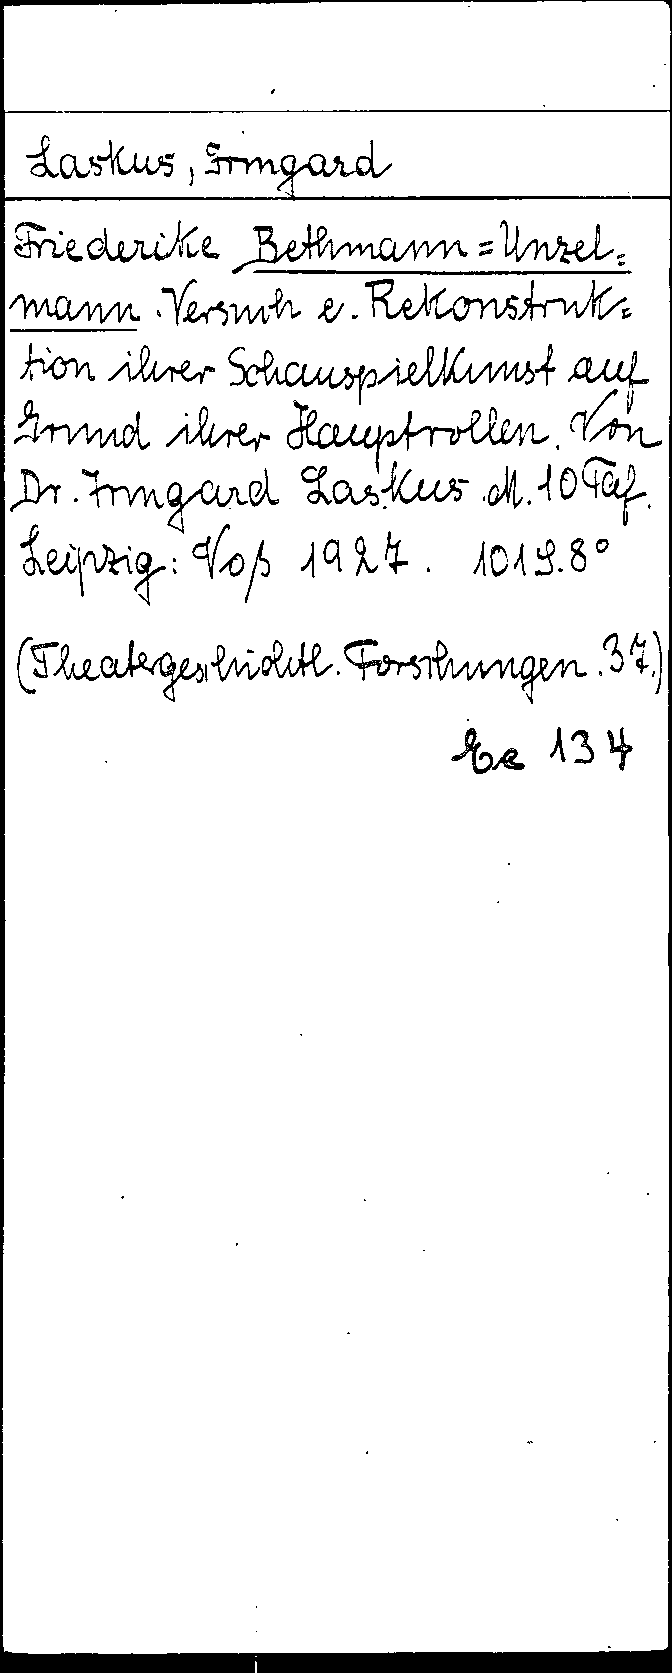 Laskus, Irmgard
Friederike Bethmann=Unzel=
mann. Versuch e. Rekonstruk=
tion ihrer Schauspielkunst auf
Grund ihrer Hauptrollen. Von
Dr. Irmgard Laskus. M. 10 Taf.
Leipzig: Voß 1927. 101 S. 8°
(Theatergeschichtl. Forschungen. 37.)
Ee 134